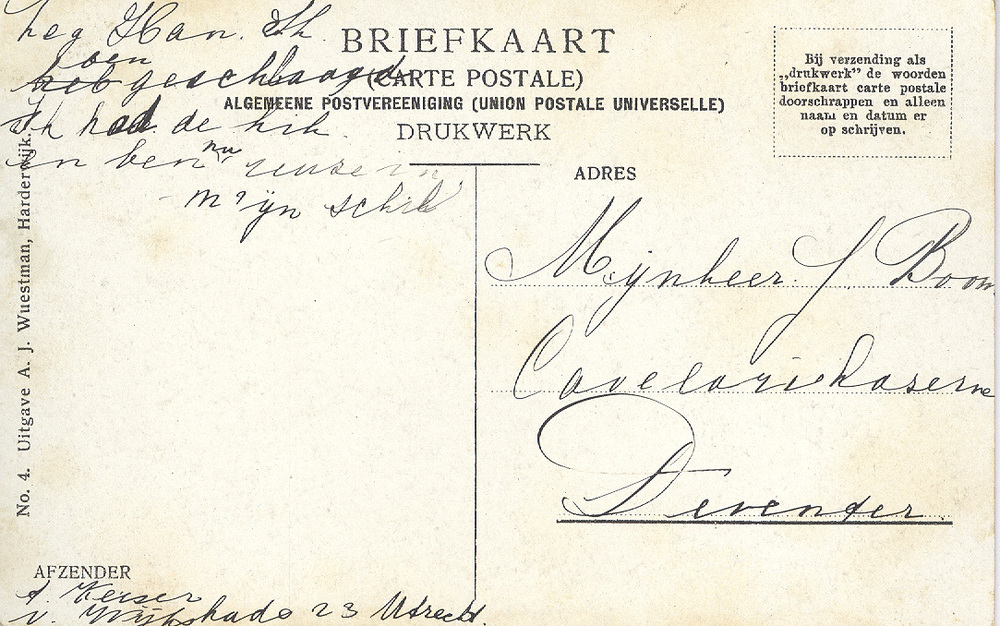 heg Han. Ik
ben
heb geschlaagd
Ik had de hik.
en ben nu
mijn schik
BRIEFKAART
(CARTE POSTALE)
ALGEMEENE POSTVEREENIGING (UNION POSTALE UNIVERSELLE)
DRUKWERK
Bij verzending als
„drukwerk” de woorden
briefkaart carte postale
doorschrappen en alleen
naam en datum er
op schrijven.
ADRES
Mijnheer J Boom
Cavelariekaserne
Deventer.
No. 4. Uitgave A. J. Wuestman, Harderwijk.
AFZENDER
A. Keiser
v. Wijskade 23 Utrecht.